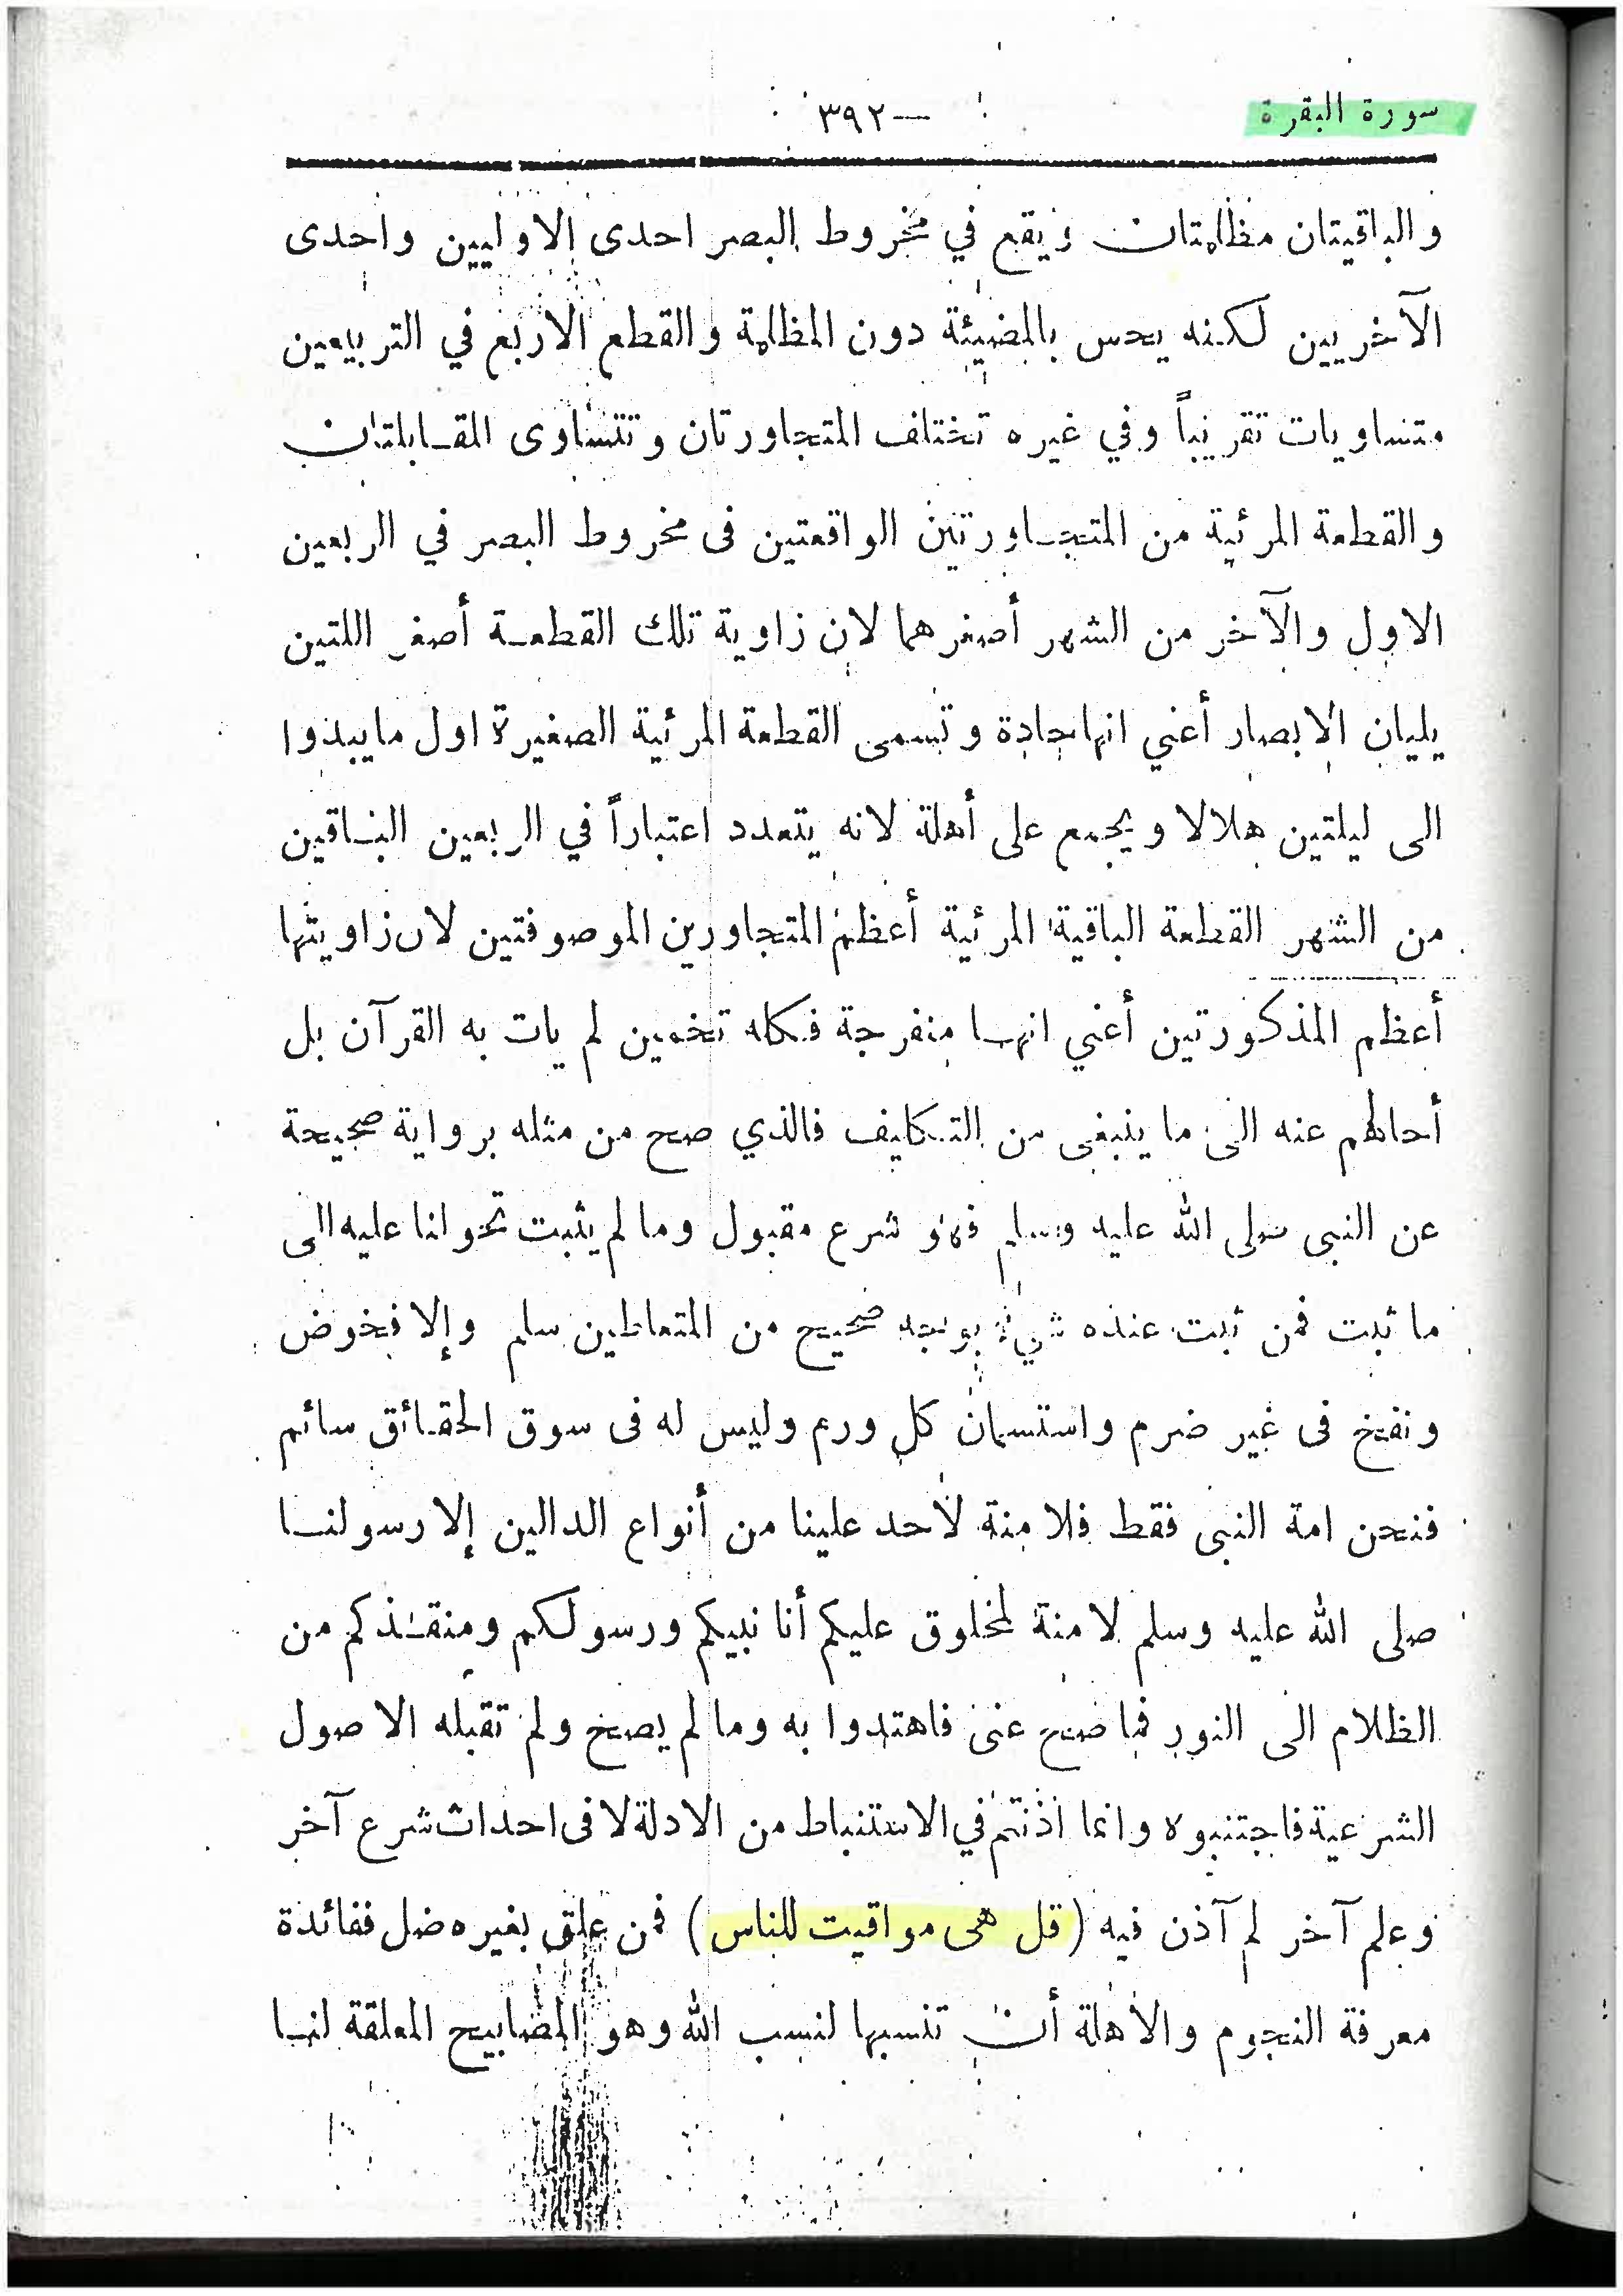 سورة البقرة
— ٣٩٢
والباقيتان مظلمتان ويقع في مخروط البصر احدى الاوليين واحدى
الآخريين لكنه يحس بالمضيئة دون المظلمة والقطع الاربع في التربيعين
متساويات تقريباً وفي غيره تختلف المتجاورتان وتتساوى المقابلتان
والقطعة المرئية من المتجاورتين الواقعتين فى مخروط البصر في الربعين
الاول والآخر من الشهر أصغرهما لان زاوية تلك القطعة أصغر اللتين
يليان الابصار أعني انها حادة وتسمى القطعة المرئية الصغيرة اول ما يبدوا
الى ليلتين هلالا ويجمع على أهلة لانه يتعدد اعتباراً في الربعين الباقين
من الشهر القطعة الباقية المرئية أعظم المتجاورين الموصوفتين لان زاويتها
أعظم المذكورتين أعني انها منفرجة فكله تخمين لم يات به القرآن بل
أحالهم عنه الى ما ينبغى من التكليف فالذي صح من مثله برواية صحيحة
عن النبى صلى الله عليه وسلم فهو شرع مقبول وما لم يثبت تحولنا عليه الى
ما ثبت فمن ثبت عنده شيء بوجه صحيح من المتعاطين سلم وإلا فخوض
ونفخ فى غير ضرم واستسمان كل ورم وليس له فى سوق الحقائق سائم
فنحن امة النبى فقط فلا منة لأحد علينا من أنواع الدالين إلا رسولنا
صلى الله عليه وسلم لا منة لمخلوق عليكم أنا نبيكم ورسولكم ومنقذكم من
الظلام الى النور فما صح عنى فاهتدوا به وما لم يصح ولم تقبله الاصول
الشرعية فاجتنبوه وانما اذنتم في الاستنباط من الادلة لا فى احداث شرع آخر
وعلم آخر لم آذن فيه (قل هى مواقيت للناس) فمن علق بغيره ضل ففائدة
معرفة النجوم والأهلة أن تنسبها لنسب الله وهو المصابيح المعلقة لنا